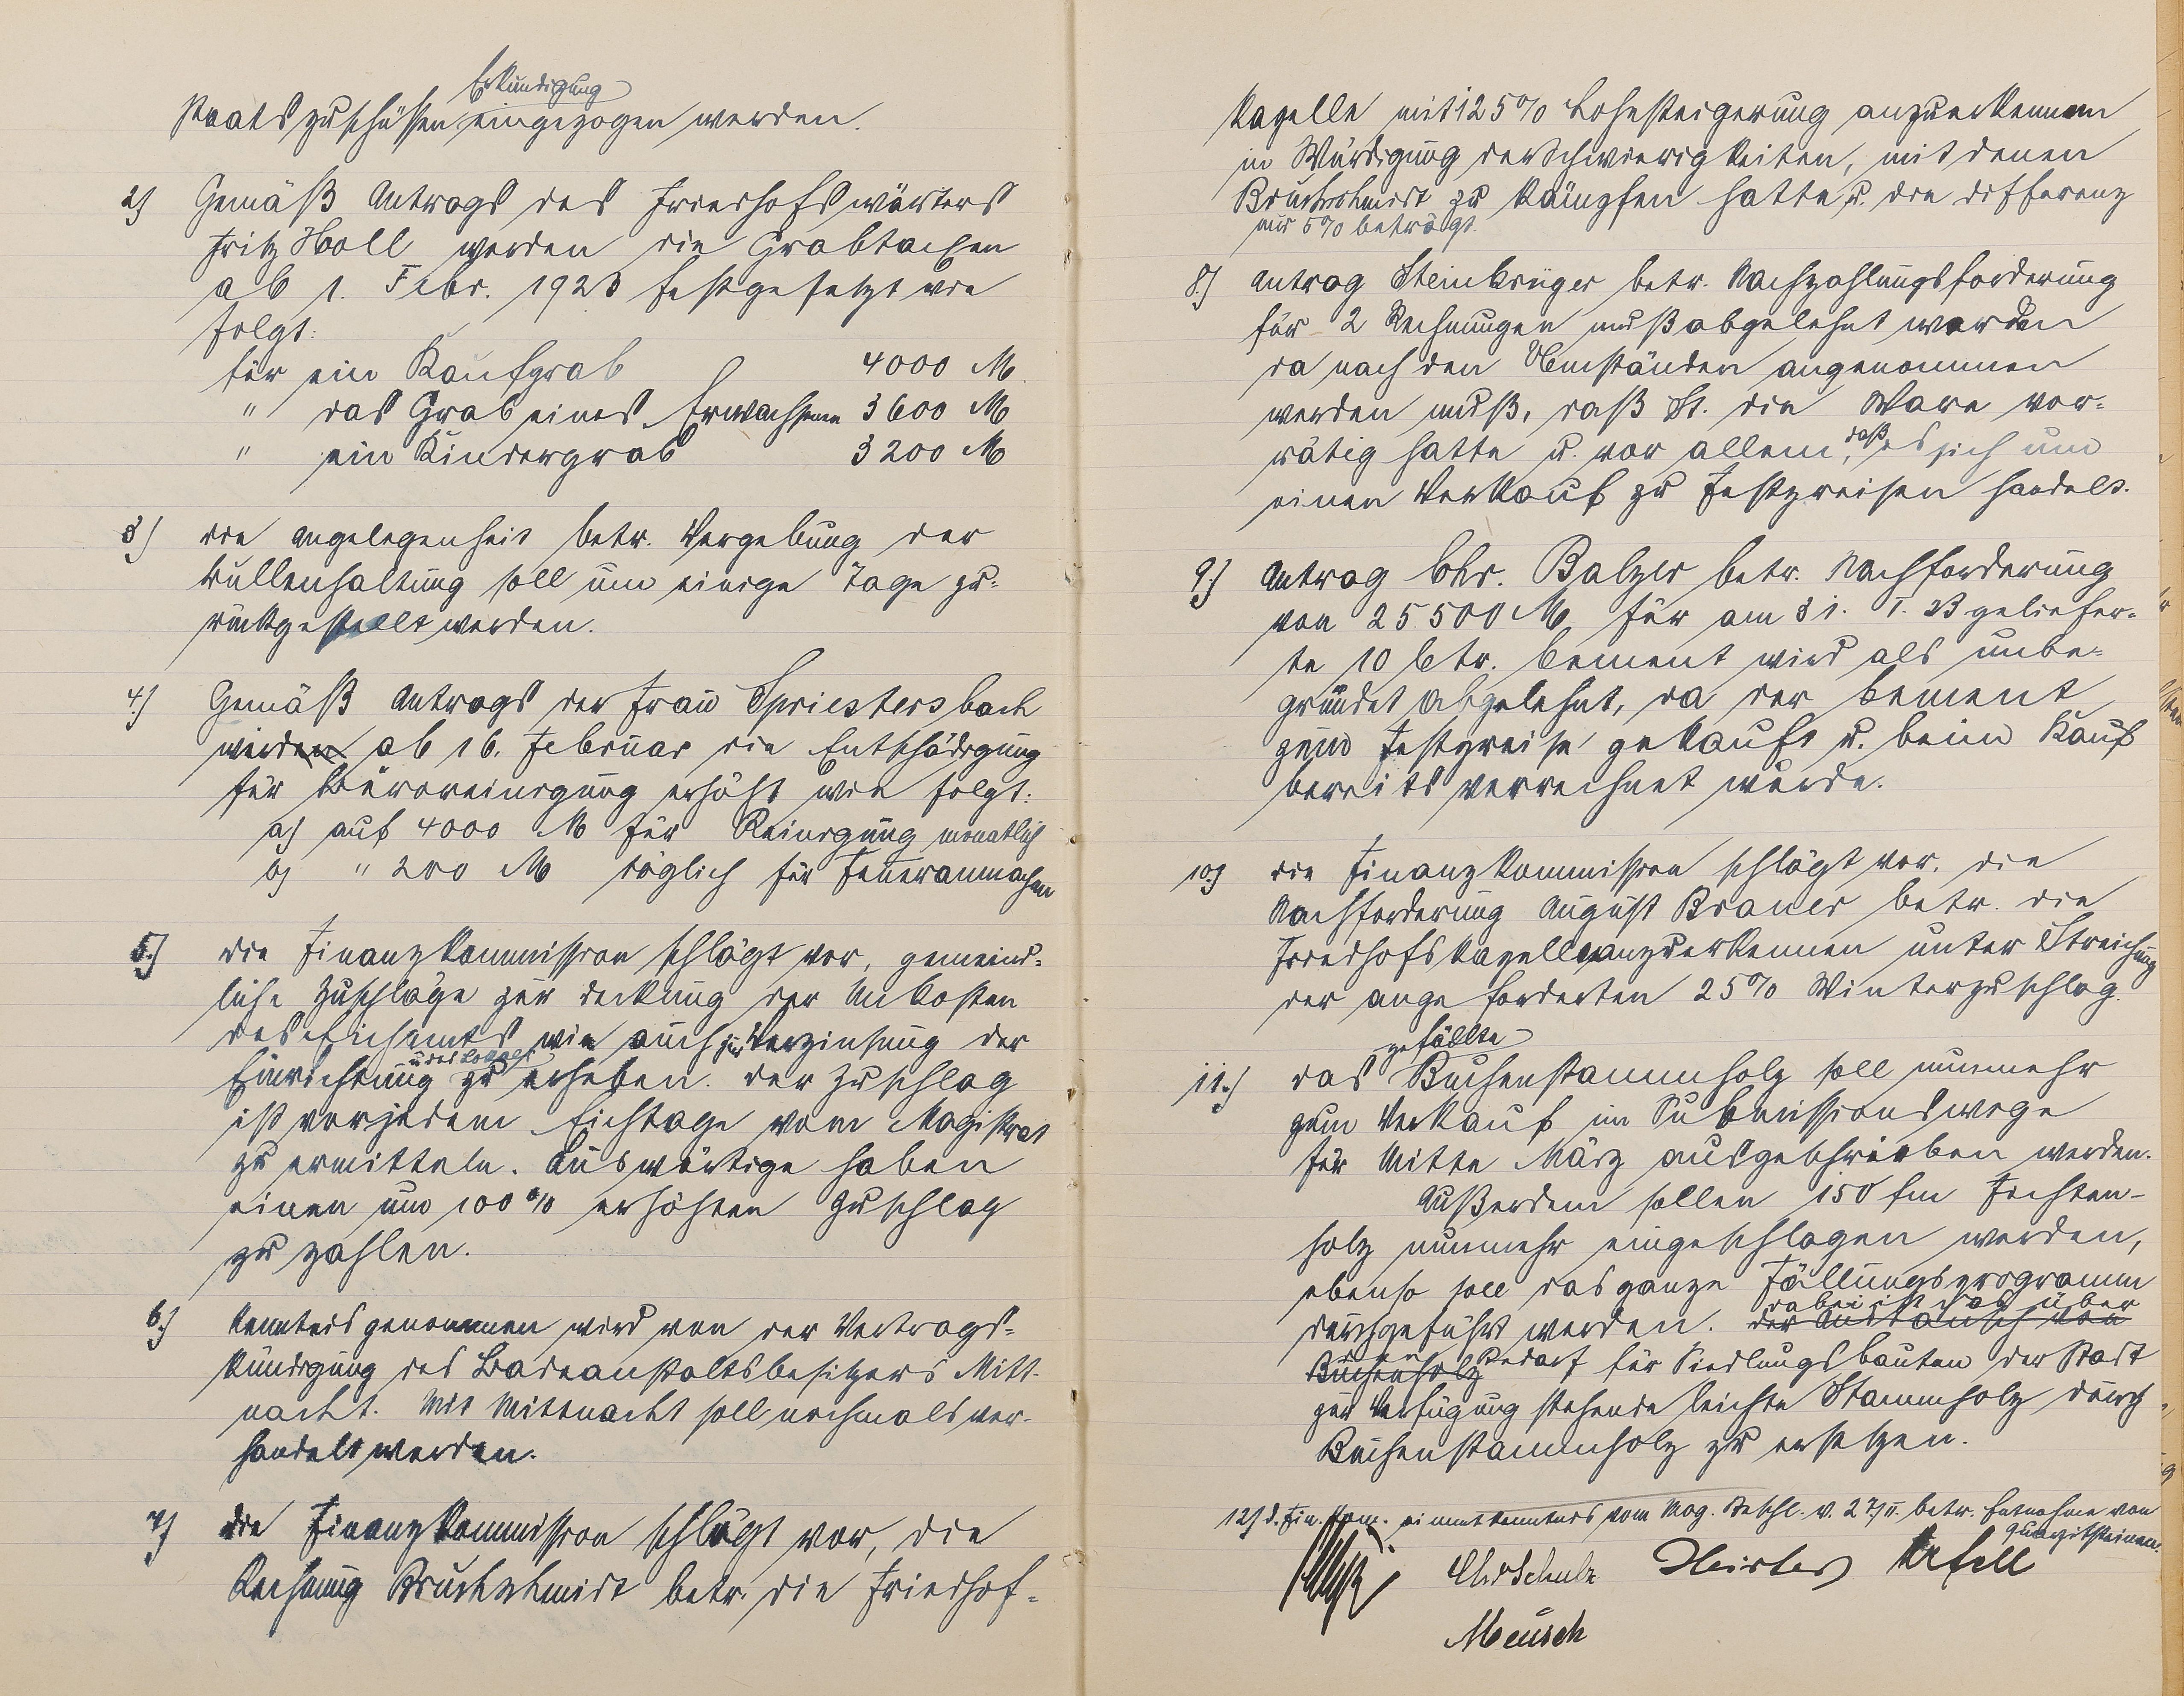 Erkundigung
Staatszuschüssen eingezogen werden.
2) Gemäß Antrags des Friedhofswärters
Fritz Holl werden die Grabtaxen
ab 1. Febr. 1923 festgesetzt wie
folgt:
für ein Kaufgrab 4000 M.
" das Grab eines Erwachsenen 3600 M
" ein Kindergrab 3200 M
3) die Angelegenheit betr. Vergebung der
Bullenhaltung soll um einige Tage zu-
rückgestellt werden.
4.) Gemäß Antrags der Frau Spriestersbach
werden ab 16. Februar die Entschädigung
für Büroreinigung erhöht wie folgt:
a) auf 4000 M für Reinigung monatlich
b) " 200 M täglich für Feueranmachen
5.) die Finanzkommission schlägt vor, gemeind-
liche Zuschläge zur Deckung der Unkosten
des Eichamts wie auch für Verzinsung der
u des Lokals
Einrichtung zu erheben. der Zuschlag
ist vor jedem Eichtage vom Magistrat
zu ermitteln. Auswärtige haben
einen um 100% erhöhten Zuschlag
zu zahlen.
6.) Kenntnis genommen wird von der Vertrags-
kündigung des Badeanstaltsbesitzers Mitt-
nacht. Mit Mittnacht soll nochmals ver-
handelt werden.
7) die Finanzkommission schlägt vor, die
Rechnung Bruchschmidt betr. die Friedhof-
kapelle mit 125% Lohnsteigerung anzuerkennen
in Würdigung der Schwierigkeiten, mit denen
Bruchschmidt zu kämpfen hatte u. die Differenz
nur 5% beträgt.
8.) Antrag Steinbrüger betr. Nachzahlungsforderung
für 2 Rechnungen muß abgelehnt werden
da nach den Umständen angenommen
werden muß, daß St. die Ware vor-
rätig hatte u. vor allem, daß es sich um
einen Verkauf zu Festpreisen handelt.
9.) Antrag Chr. Balzer betr. Nachforderung
von 25500 M, für am 31. I. 23 geliefer-
te 10 Ctr. Cement wird als unbe-
gründet abgelehnt, da der Cement
zum Festpreise gekauft u. beim Kauf
bereits verrechnet wurde.
10.) die Finanzkommission schlägt vor, die
Nachforderung August Braner betr. die
Friedhofskapelle anzuerkennen unter Streichung
der angeforderten 25% Winterzuschlag.
gefällte
11.) das Buchenstammholz soll nunmehr
zum Verkauf im Submissionswege
für Mitte März ausgeschrieben werden.
Außerdem sollen 150 fm Fichten-
holz nunmehr eingeschlagen werden,
ebenso soll das ganze Fällungsprogramm
dabei ist das über
durchgeführt werden. der Austausch von
Buchenholz Bedarf für Siedlungsbauten der Stadt
zur Verfügung stehende leichte Stammholz durch
Buchenstammholz zu ersetzen.
12) d. Fin. Kom. nimmt Kenntnis vom Mag. Beschl. v. 27/II. betr. Entnahme von
Quarzitsteinen.
Chr Schulz
Meusch